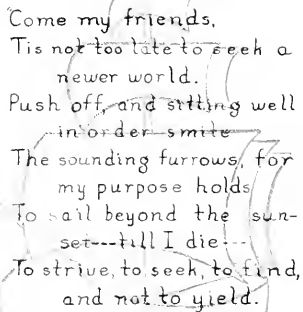 "Come my friends,
Tis not too late to seek a
newer world.
Push off, and sitting well
in order smite
The sounding furrows, for
my purpose holds
To sail beyond the sun-
set---till I die---
To strive, to seek, to find,
and not to yield.